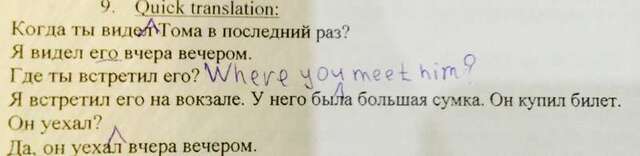 9. Quick translation:
Когда ты видел Тома в последний раз?
Я видел его вчера вечером.
Где ты встретил его? Where you meet him?
Я встретил его на вокзале. У него была большая сумка. Он купил билет.
Он уехал?
Да, он уехал вчера вечером.